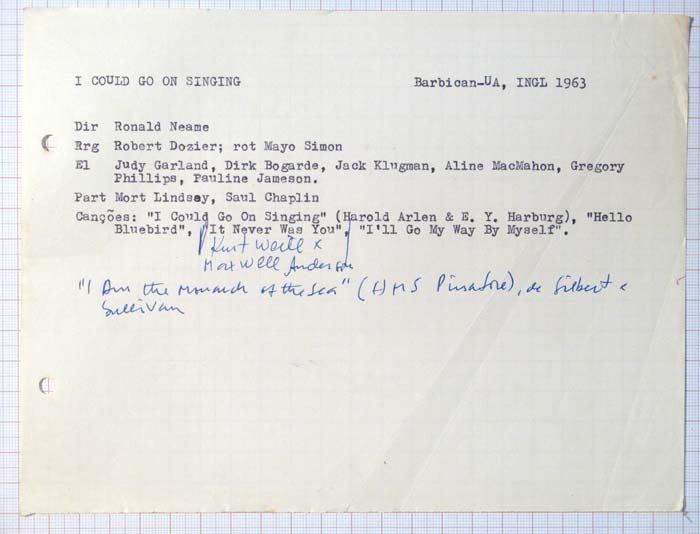 I COULD GO ON SINGING Barbican-UA, INGL 1963
Dir Ronald Neame
Rrg Robert Dozier; rot Mayo Simon
El Judy Garland, Dirk Bogarde, Jack Klugman, Aline MacMahon, Gregory
Phillips, Pauline Jameson.
Part Mort Lindsey, Saul Chaplin
Canções: "I Could Go On Singing" (Harold Arlen & E. Y. Harburg), "Hello
Bluebird", "It Never Was You", "I'll Go My Way By Myself".
Kurt Weill x
Maxwell Anderson
"I Am the Monarch of the Sea" (HMS Pinafore), de Gilbert e
Sullivan